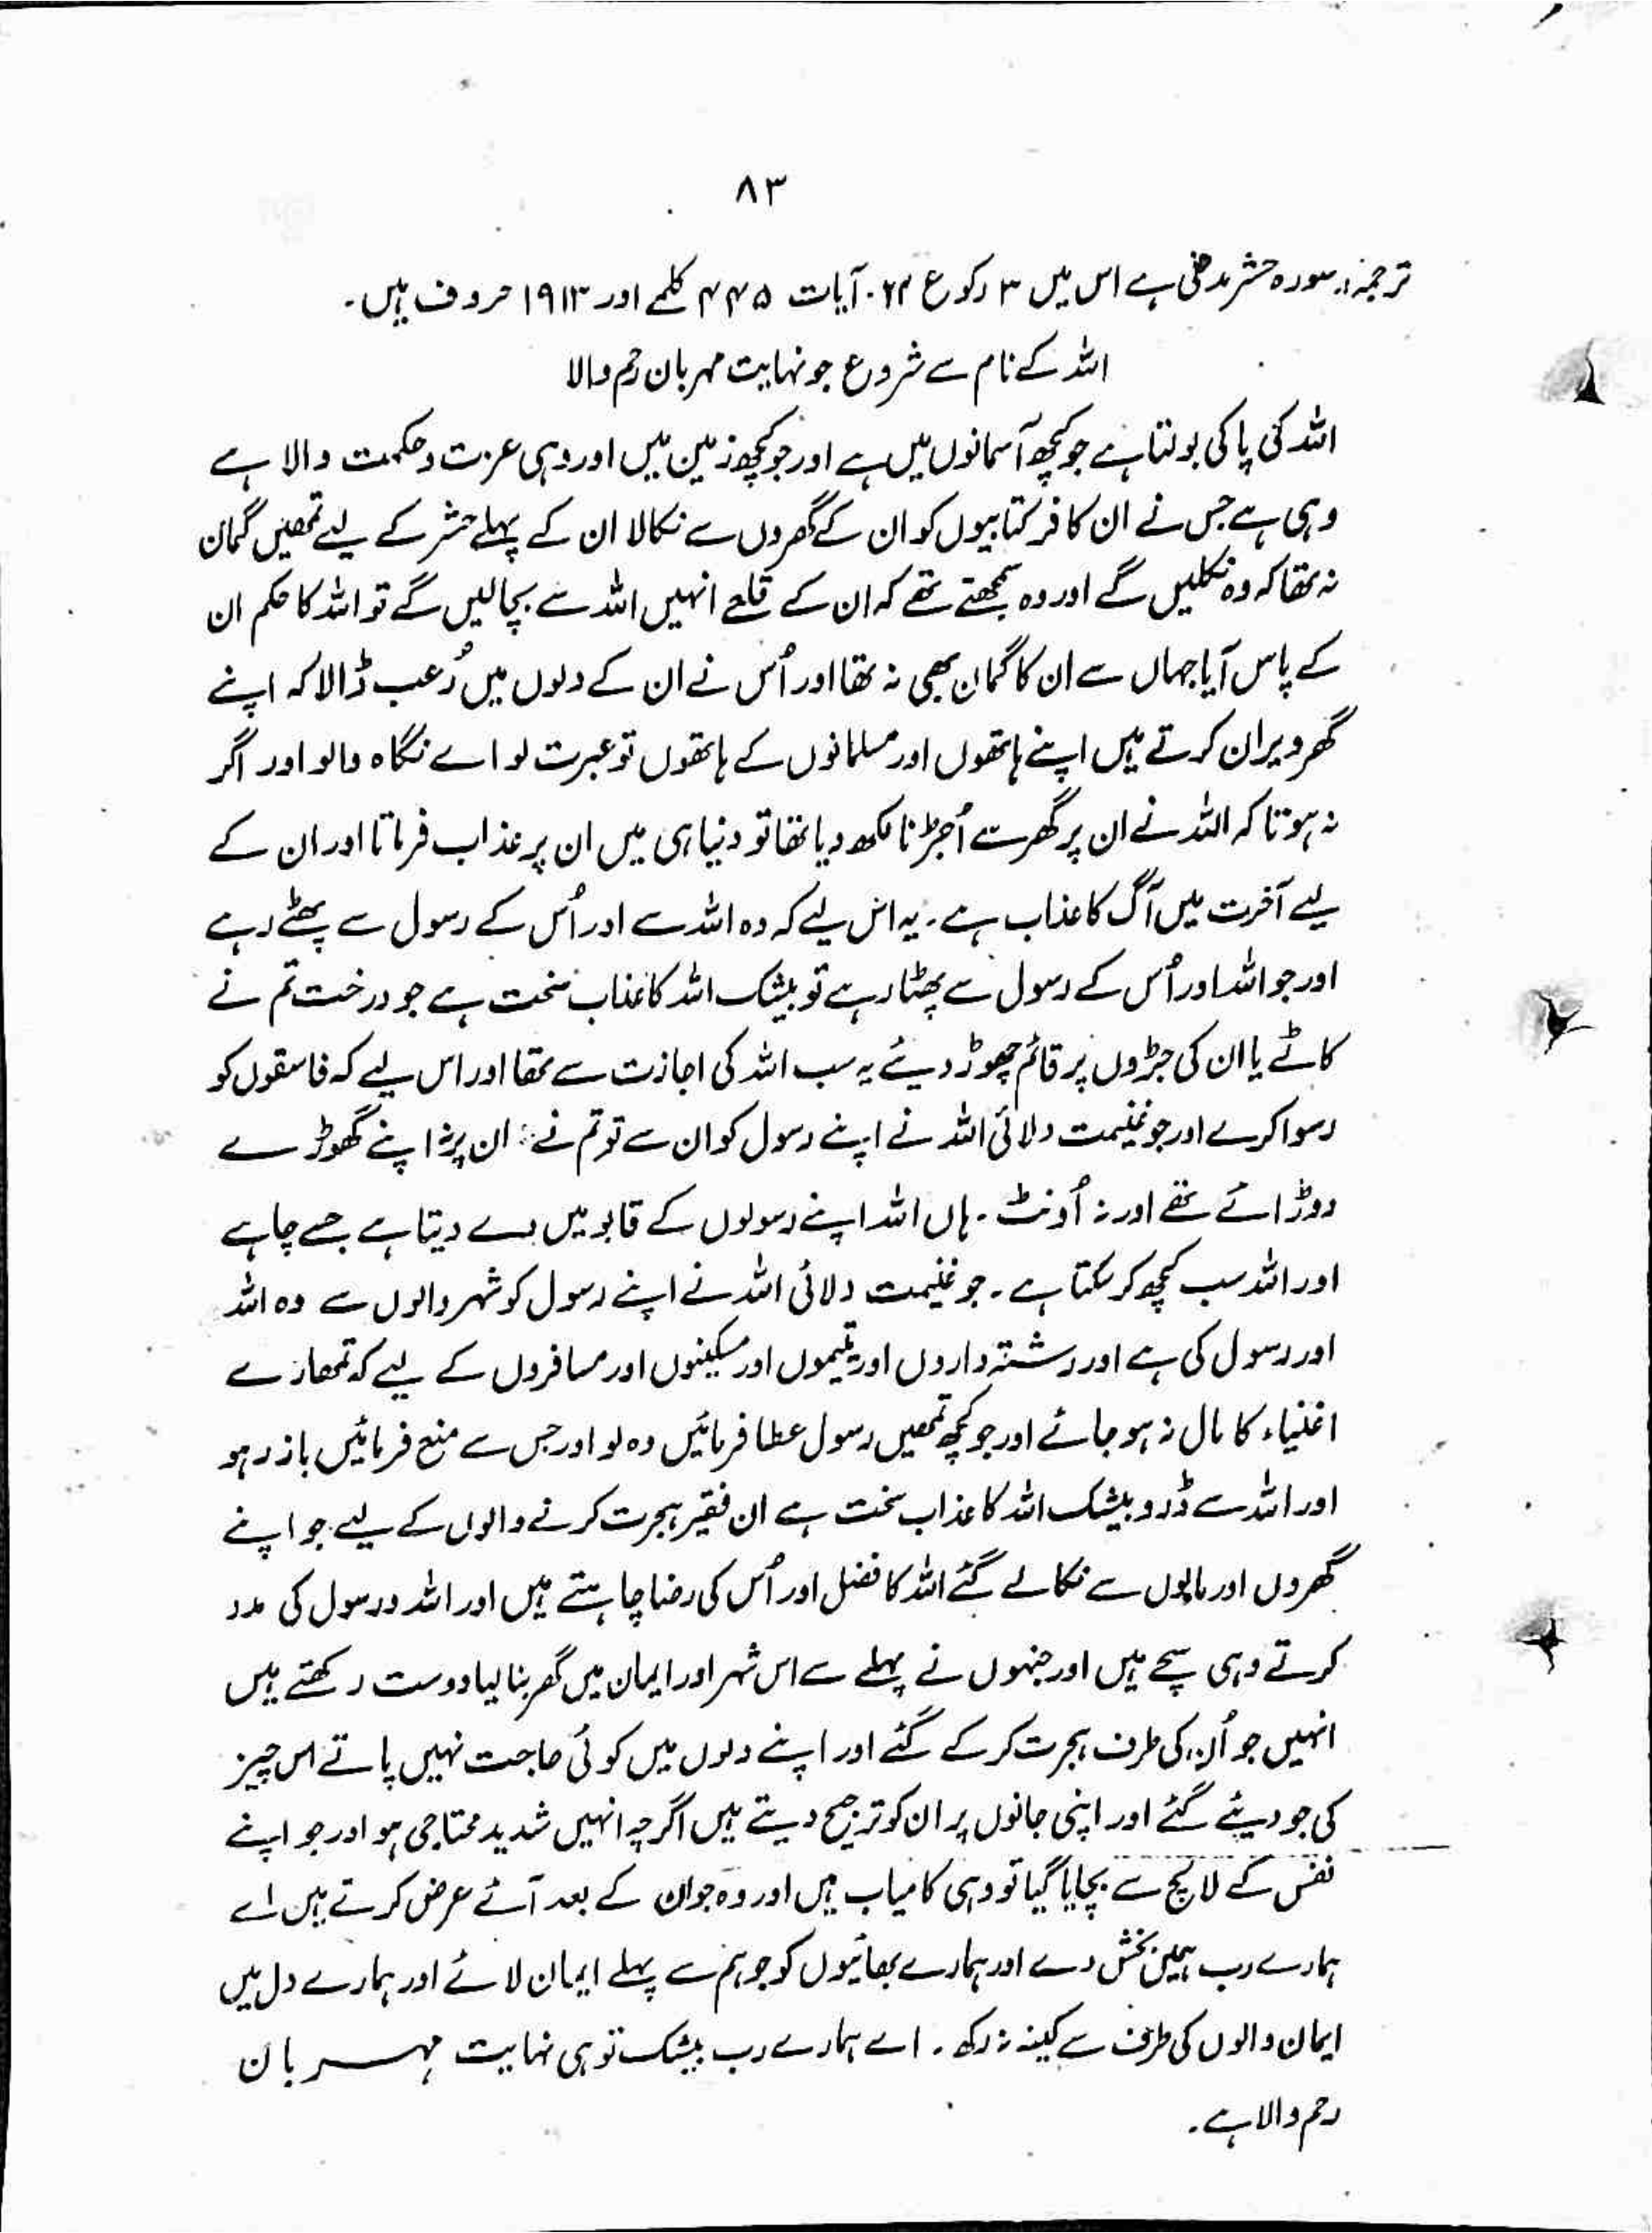 ۸۳
ترجمہ:۔ سورہ حشر مدنی ہے اس میں ۳ رکوع ۲۴۔ آیات ۴۴۵ کلمے اور ۱۹۱۳ حروف ہیں۔
اللہ کے نام سے شروع جو نہایت مہربان رحم والا
اللہ کی پاکی بولتا ہے جو کچھ آسمانوں میں ہے اور جو کچھ زمین میں اور وہی عزت و حکمت والا ہے
وہی ہے جس نے ان کافر کتابیوں کو ان کے گھروں سے نکالا ان کے پہلے حشر کے لیے تمھیں گمان
نہ تھا کہ وہ نکلیں گے اور وہ سمجھتے تھے کہ ان کے قلعے انہیں اللہ سے بچالیں گے تو اللہ کا حکم ان
کے پاس آیا جہاں سے ان کا گمان بھی نہ تھا اور اُس نے ان کے دلوں میں رُعب ڈالا کہ اپنے
گھر ویران کرتے ہیں اپنے ہاتھوں اور مسلمانوں کے ہاتھوں تو عبرت لو اے نگاہ والو اور اگر
نہ ہوتا کہ اللہ نے ان پر گھر سے اُجڑنا لکھ دیا تھا تو دنیا ہی میں ان پر عذاب فرماتا اور ان کے
لیے آخرت میں آگ کا عذاب ہے۔ یہ اس لیے کہ وہ اللہ سے اور اُس کے رسول سے پھٹے رہے
اور جو اللہ اور اُس کے رسول سے پھٹا رہے تو بیشک اللہ کا عذاب سخت ہے جو درخت تم نے
کاٹے یا ان کی جڑوں پر قائم چھوڑ دیئے یہ سب اللہ کی اجازت سے تھا اور اس لیے کہ فاسقوں کو
رسوا کرے اور جو غنیمت دلائی اللہ نے اپنے رسول کو ان سے تو تم نے ان پر نہ اپنے گھوڑے
دوڑائے تھے اور نہ اُونٹ۔ ہاں اللہ اپنے رسولوں کے قابو میں دے دیتا ہے جسے چاہے
اور اللہ سب کچھ کر سکتا ہے۔ جو غنیمت دلائی اللہ نے اپنے رسول کو شہر والوں سے وہ اللہ
اور رسول کی ہے اور رشتہ داروں اور یتیموں اور مسکینوں اور مسافروں کے لیے کہ تمھارے
اغنیاء کا مال نہ ہو جائے اور جو کچھ تمھیں رسول عطا فرمائیں وہ لو اور جس سے منع فرمائیں باز رہو
اور اللہ سے ڈرو بیشک اللہ کا عذاب سخت ہے ان فقیر ہجرت کرنے والوں کے لیے جو اپنے
گھروں اور مالوں سے نکالے گئے اللہ کا فضل اور اُس کی رضا چاہتے ہیں اور اللہ و رسول کی مدد
کرتے وہی سچے ہیں اور جنہوں نے پہلے سے اس شہر اور ایمان میں گھر بنا لیا دوست رکھتے ہیں
انہیں جو اُن کی طرف ہجرت کر کے گئے اور اپنے دلوں میں کوئی حاجت نہیں پاتے اس چیز
کی جو دیئے گئے اور اپنی جانوں پر ان کو ترجیح دیتے ہیں اگرچہ انہیں شدید محتاجی ہو اور جو اپنے
نفس کے لالچ سے بچایا گیا تو وہی کامیاب ہیں اور وہ جو ان کے بعد آئے عرض کرتے ہیں اے
ہمارے رب ہمیں بخش دے اور ہمارے بھائیوں کو جو ہم سے پہلے ایمان لائے اور ہمارے دل میں
ایمان والوں کی طرف سے کینہ نہ رکھ۔ اے ہمارے رب بیشک تو ہی نہایت مہربان
رحم والا ہے۔